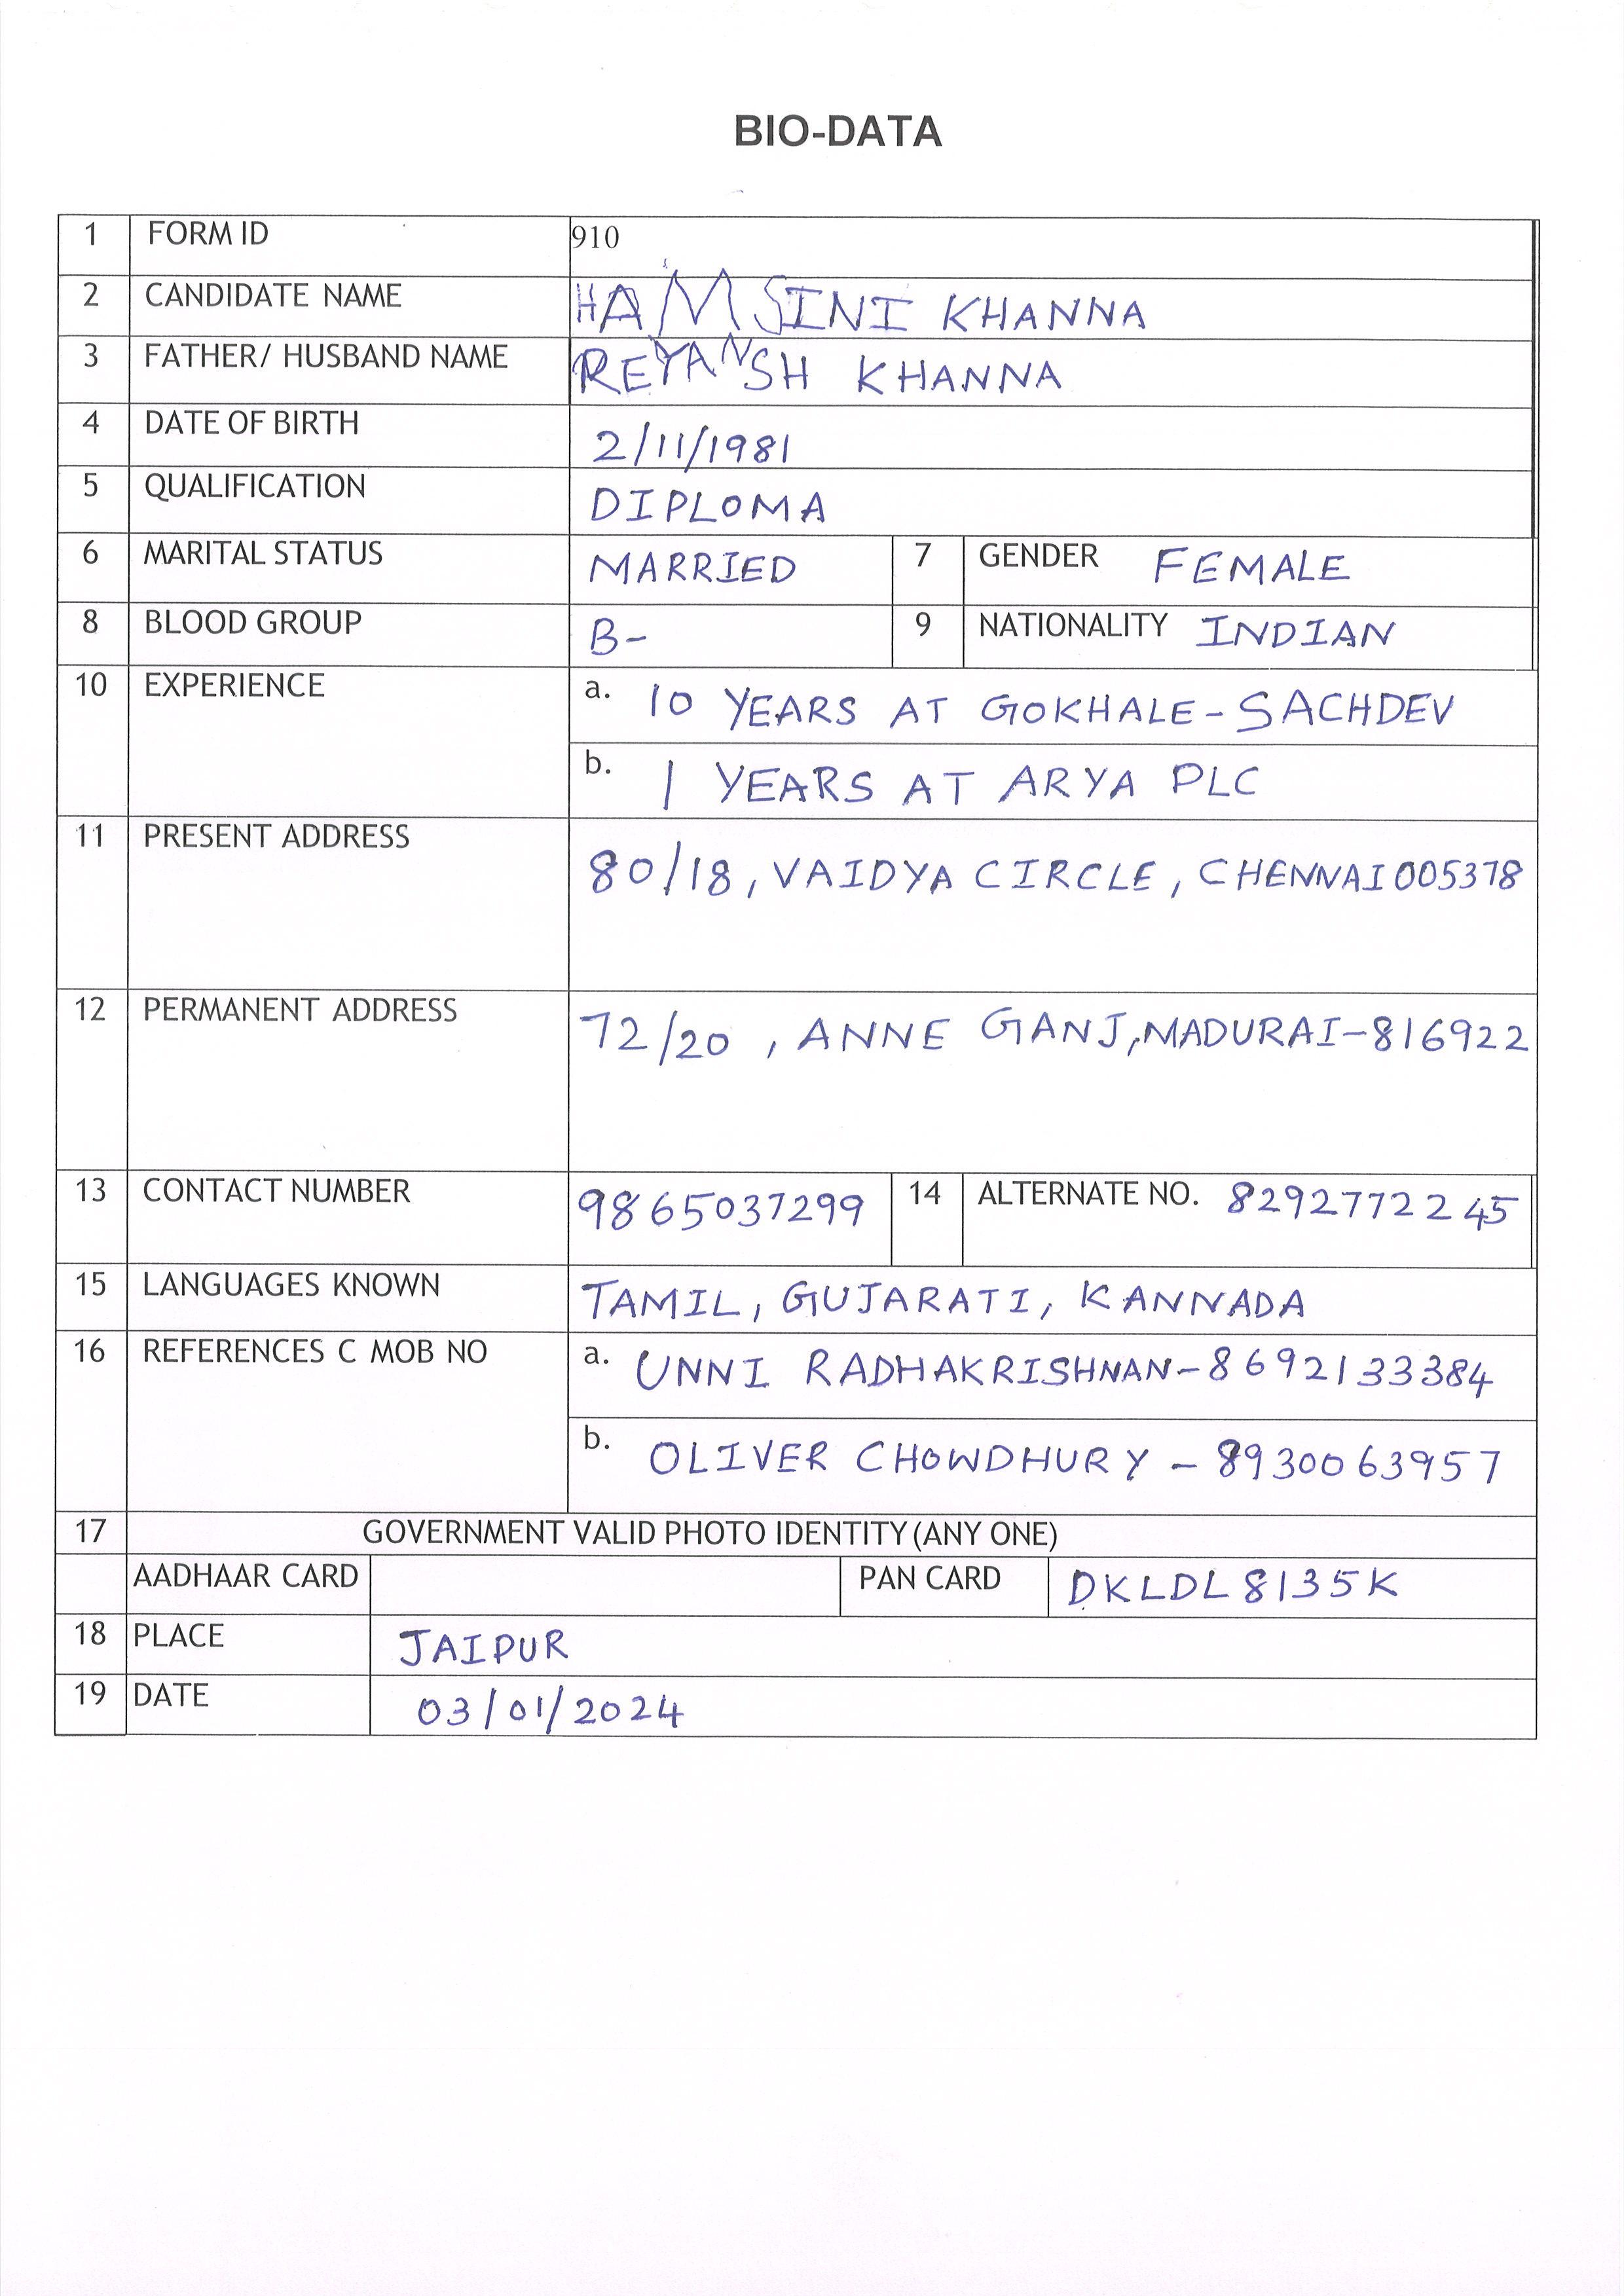 BIO-DATA
1 FORM ID 910
2 CANDIDATE NAME HAMSINI KHANNA
3 FATHER/ HUSBAND NAME REYANSH KHANNA
4 DATE OF BIRTH 2/11/1981
5 QUALIFICATION DIPLOMA
6 MARITAL STATUS MARRIED 7 GENDER FEMALE
8 BLOOD GROUP B- 9 NATIONALITY INDIAN
10 EXPERIENCE a. 10 YEARS AT GOKHALE-SACHDEV
b. 1 YEARS AT ARYA PLC
11 PRESENT ADDRESS 80/18, VAIDYA CIRCLE, CHENNAI 005378
12 PERMANENT ADDRESS 72/20, ANNE GANJ, MADURAI-816922
13 CONTACT NUMBER 9865037299 14 ALTERNATE NO. 8292772245
15 LANGUAGES KNOWN TAMIL, GUJARATI, KANNADA
16 REFERENCES C MOB NO a. UNNI RADHAKRISHNAN-8692133384
b. OLIVER CHOWDHURY - 8930063957
17 GOVERNMENT VALID PHOTO IDENTITY (ANY ONE)
AADHAAR CARD PAN CARD DKLDL8135K
18 PLACE JAIPUR
19 DATE 03/01/2024